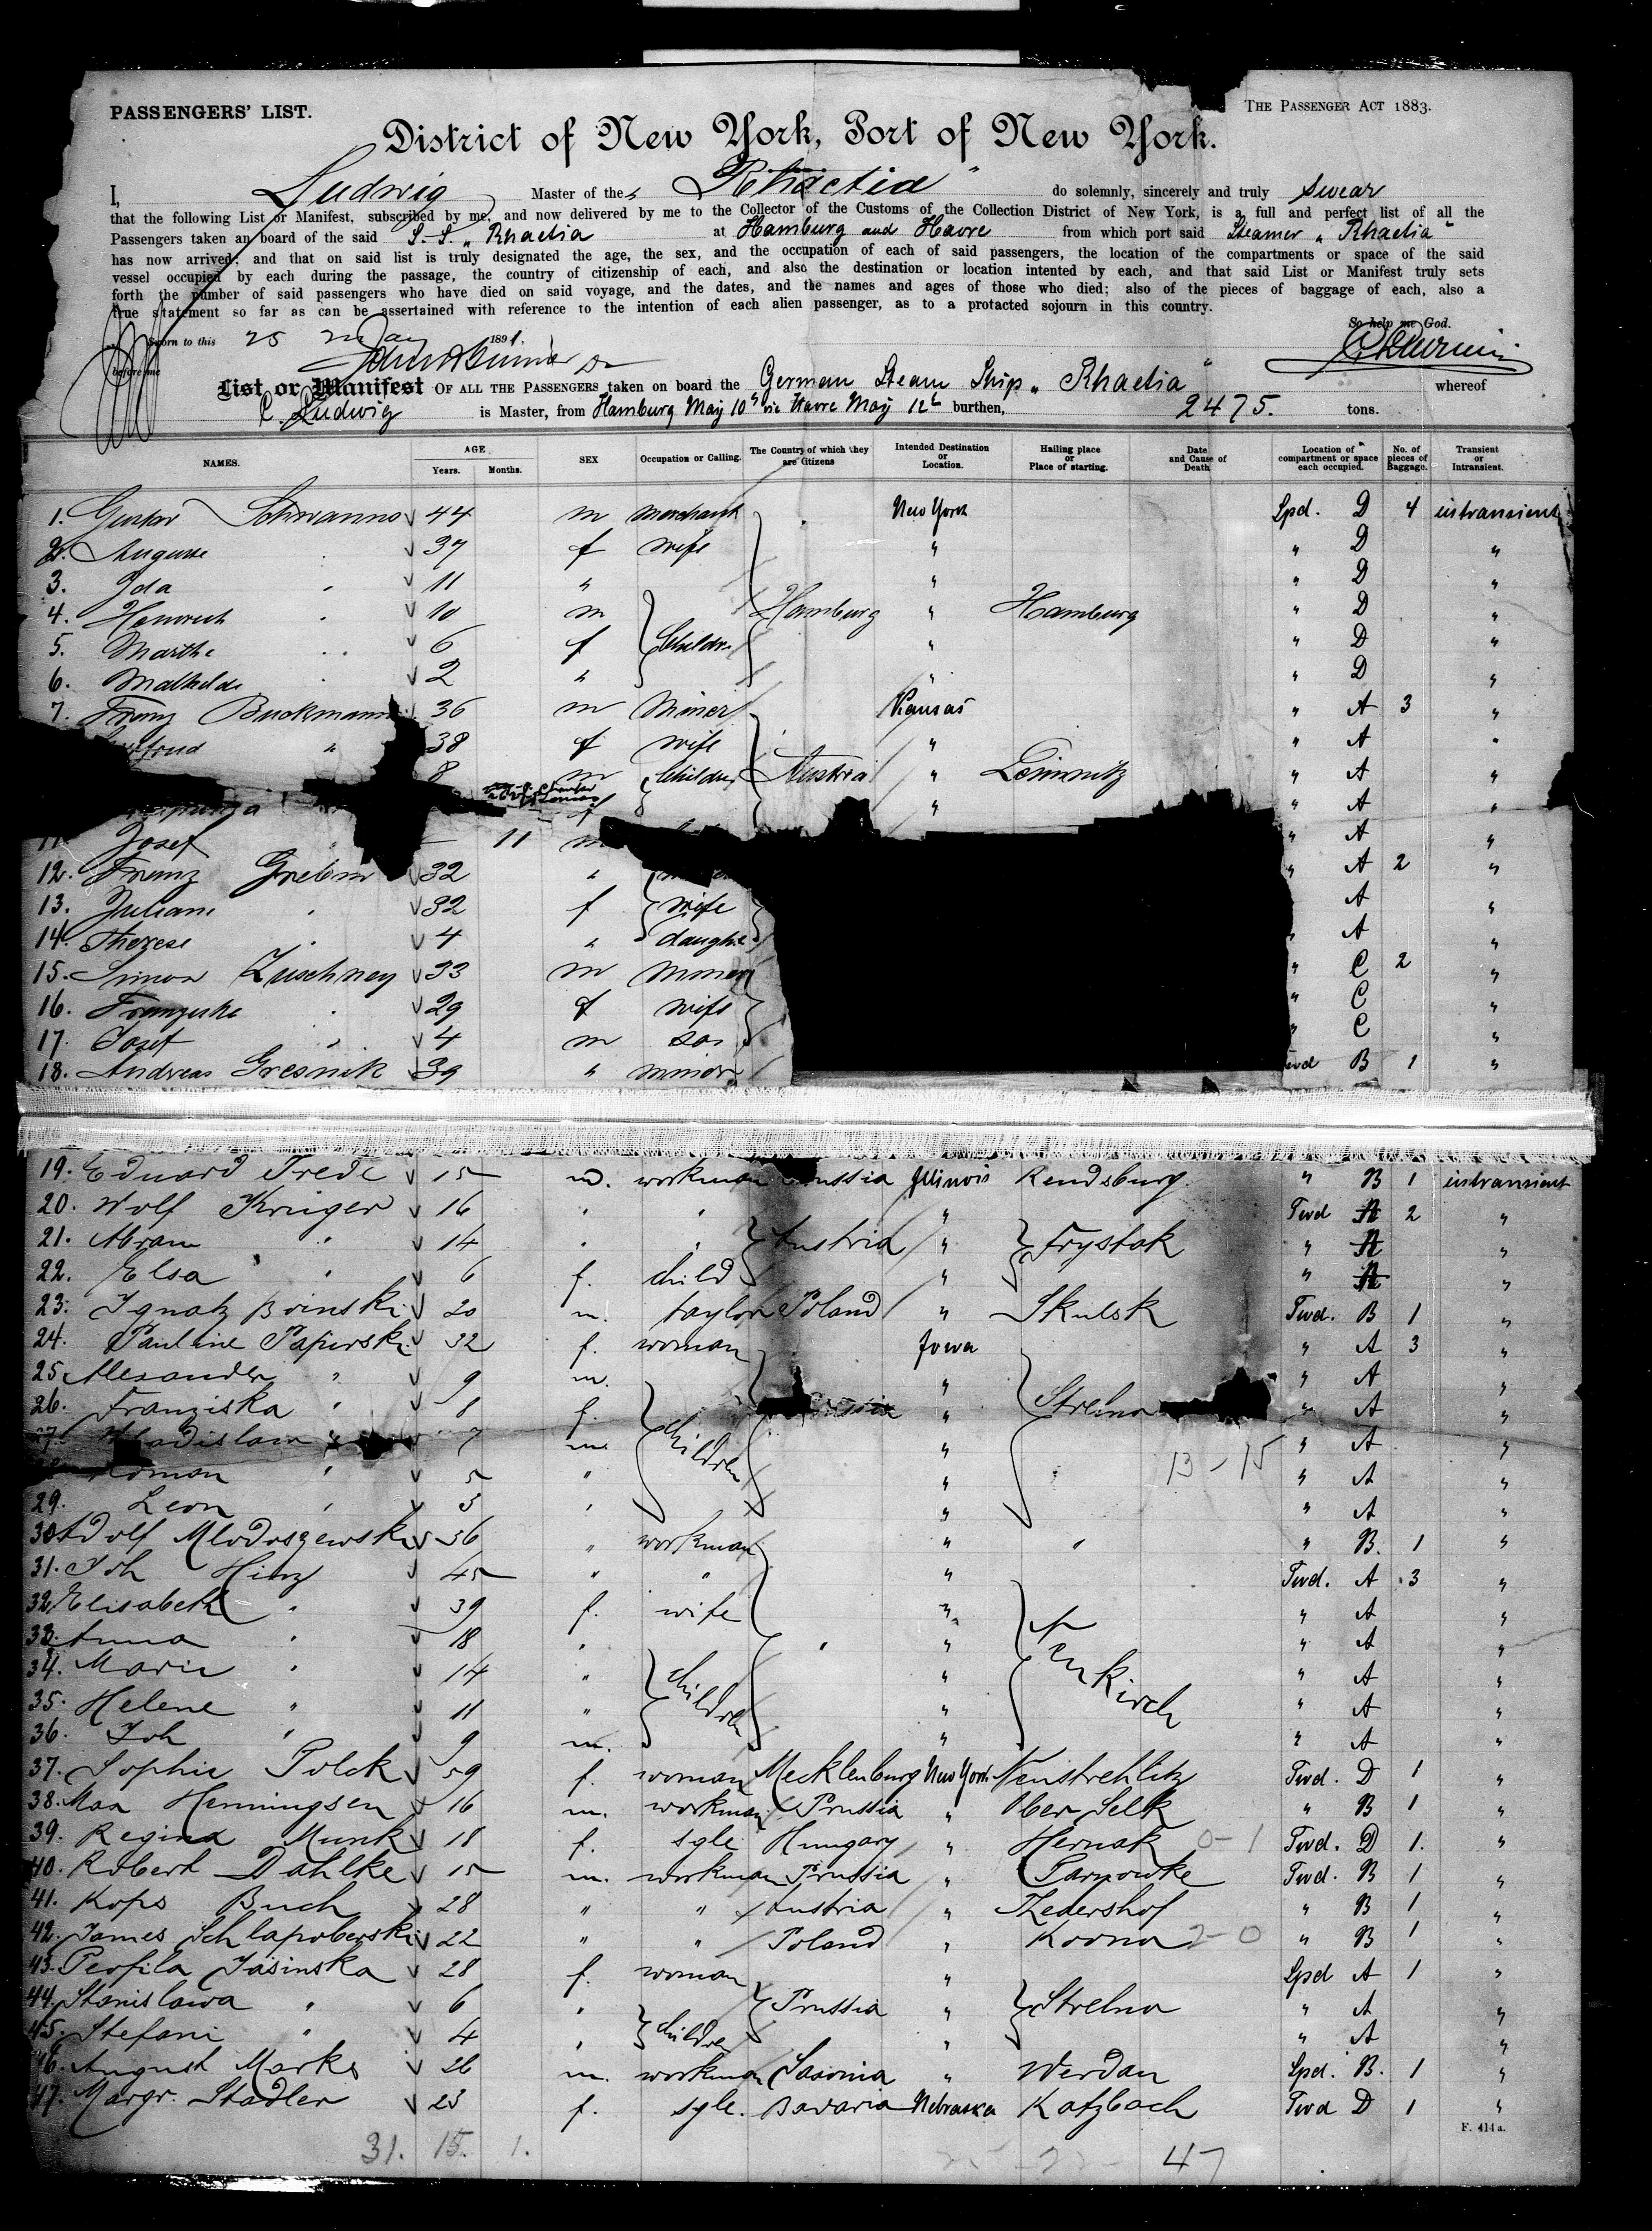 PASSENGERS' LIST.
THE PASSENGER ACT 1883.
District of New York, Port of New York.
I, Ludwig Master of the „ Rhaetia " do solemnly, sincerely and truly swear
that the following List or Manifest, subscribed by me, and now delivered by me to the Collector of the Customs of the Collection District of New York, is a full and perfect list of all the
Passengers taken an board of the said S.S. „ Rhaetia at Hamburg and Havre from which port said Steamer „ Rhaetia "
has now arrived; and that on said list is truly designated the age, the sex, and the occupation of each of said passengers, the location of the compartments or space of the said
vessel occupied by each during the passage, the country of citizenship of each, and also the destination or location intented by each, and that said List or Manifest truly sets
forth the number of said passengers who have died on said voyage, and the dates, and the names and ages of those who died; also of the pieces of baggage of each, also a
true statement so far as can be assertained with reference to the intention of each alien passenger, as to a protacted sojourn in this country.
So help me God.
Sworn to this 25 May 1891.
before me
List or Manifest OF ALL THE PASSENGERS taken on board the German Steam Ship „ Rhaetia " whereof
C. Ludwig is Master, from Hamburg May 10th via Havre May 12th burthen, 2475. tons.
NAMES. AGE Years. Months. SEX Occupation or Calling. The Country of which they are Citizens Intended Destination or Location. Hailing place or Place of starting. Date and Cause of Death Location of compartment or space each occupied. No. of pieces of Baggage. Transient or Intransient.
1. Gustav 44 m merchant New York Spd. D 4 intransient
2. Auguste 37 f wife " " D "
3. Ida " 11 " " " D "
4. Heinrich " 10 m Hamburg " Hamburg " D "
5. Marthe " 6 f Childr. " " D "
6. Mathilde " 2 " " " D "
7. Franz Buckmann 36 m Miner Kansas " A 3 "
" 38 f wife " " A "
8 m Children Austria " " A "
f " " A "
11. Josef — 11 m " A "
12. Franz 32 " " A 2 "
13. Juliane " 32 f wife A "
14. Therese " 4 " daughte " A "
15. Simon 33 m miner " C 2 "
16. Franziska " 29 f wife " C "
17. Josef " 4 m son " C "
18. Andreas Gresnik 39 " miner B 1 "
19. Eduard Trede 15 m. workman Illinois Rendsburg " B 1 intransient
20. Wolf Kruger 16 " " " Twd A 2 "
21. Abram " 14 " " Austria " Frystak " A "
22. Elsa " 6 f. child " " A "
23. Ignatz 20 m. taylor Poland " Skulsk Twd. B 1 "
24. Pauline 32 f. woman Iowa " A 3 "
25 Alexander " 9 m. " " A "
26. Franziska " 8 f. " Strelno " A "
27. " 7 m. children " " A "
" 5 " " 13 - 15 " A "
29. Leon " 3 " " " A "
30 Adolf 36 " workman " " " B. 1 "
31. Joh Hinz 45 " " " Twd. A 3 "
32 Elisabeth " 39 f. wife " " A "
33. Anna " 18 " " " " A "
34. Marie " 14 " children " " A "
35. Helene " 11 " " " A "
36. Joh " 9 m. " " A "
37. Sophie Polck 59 f. woman Mecklenburg New York Neustrehlitz Twd. D 1 "
38. Max Henningsen 16 m. workman Prussia " Ober Selk " B 1 "
39. Regina Munk 18 f. sgle Hungary " Hernak 0 - 1 Twd. D 1. "
40. Robert Dahlke 15 m. workman Prussia " Twd. B 1 "
41. Buch 28 " " Austria " " B 1 "
42. James Schlapoberski 22 " " Poland " 2 - 0 " B 1 "
43. Jasinska 28 f. woman " Spd A 1 "
44. Stanislawa " 6 " Prussia " Strelno " A "
45. Stefani " 4 " children " " A "
46. August Marks 26 m. workman Saxonia " Werdau Spd. B. 1 "
47. Margr. Stadler 23 f. sgle. Bavaria Nebraska Katzbach Twd D 1 "
F. 414 a.
31. 15. 1. 47